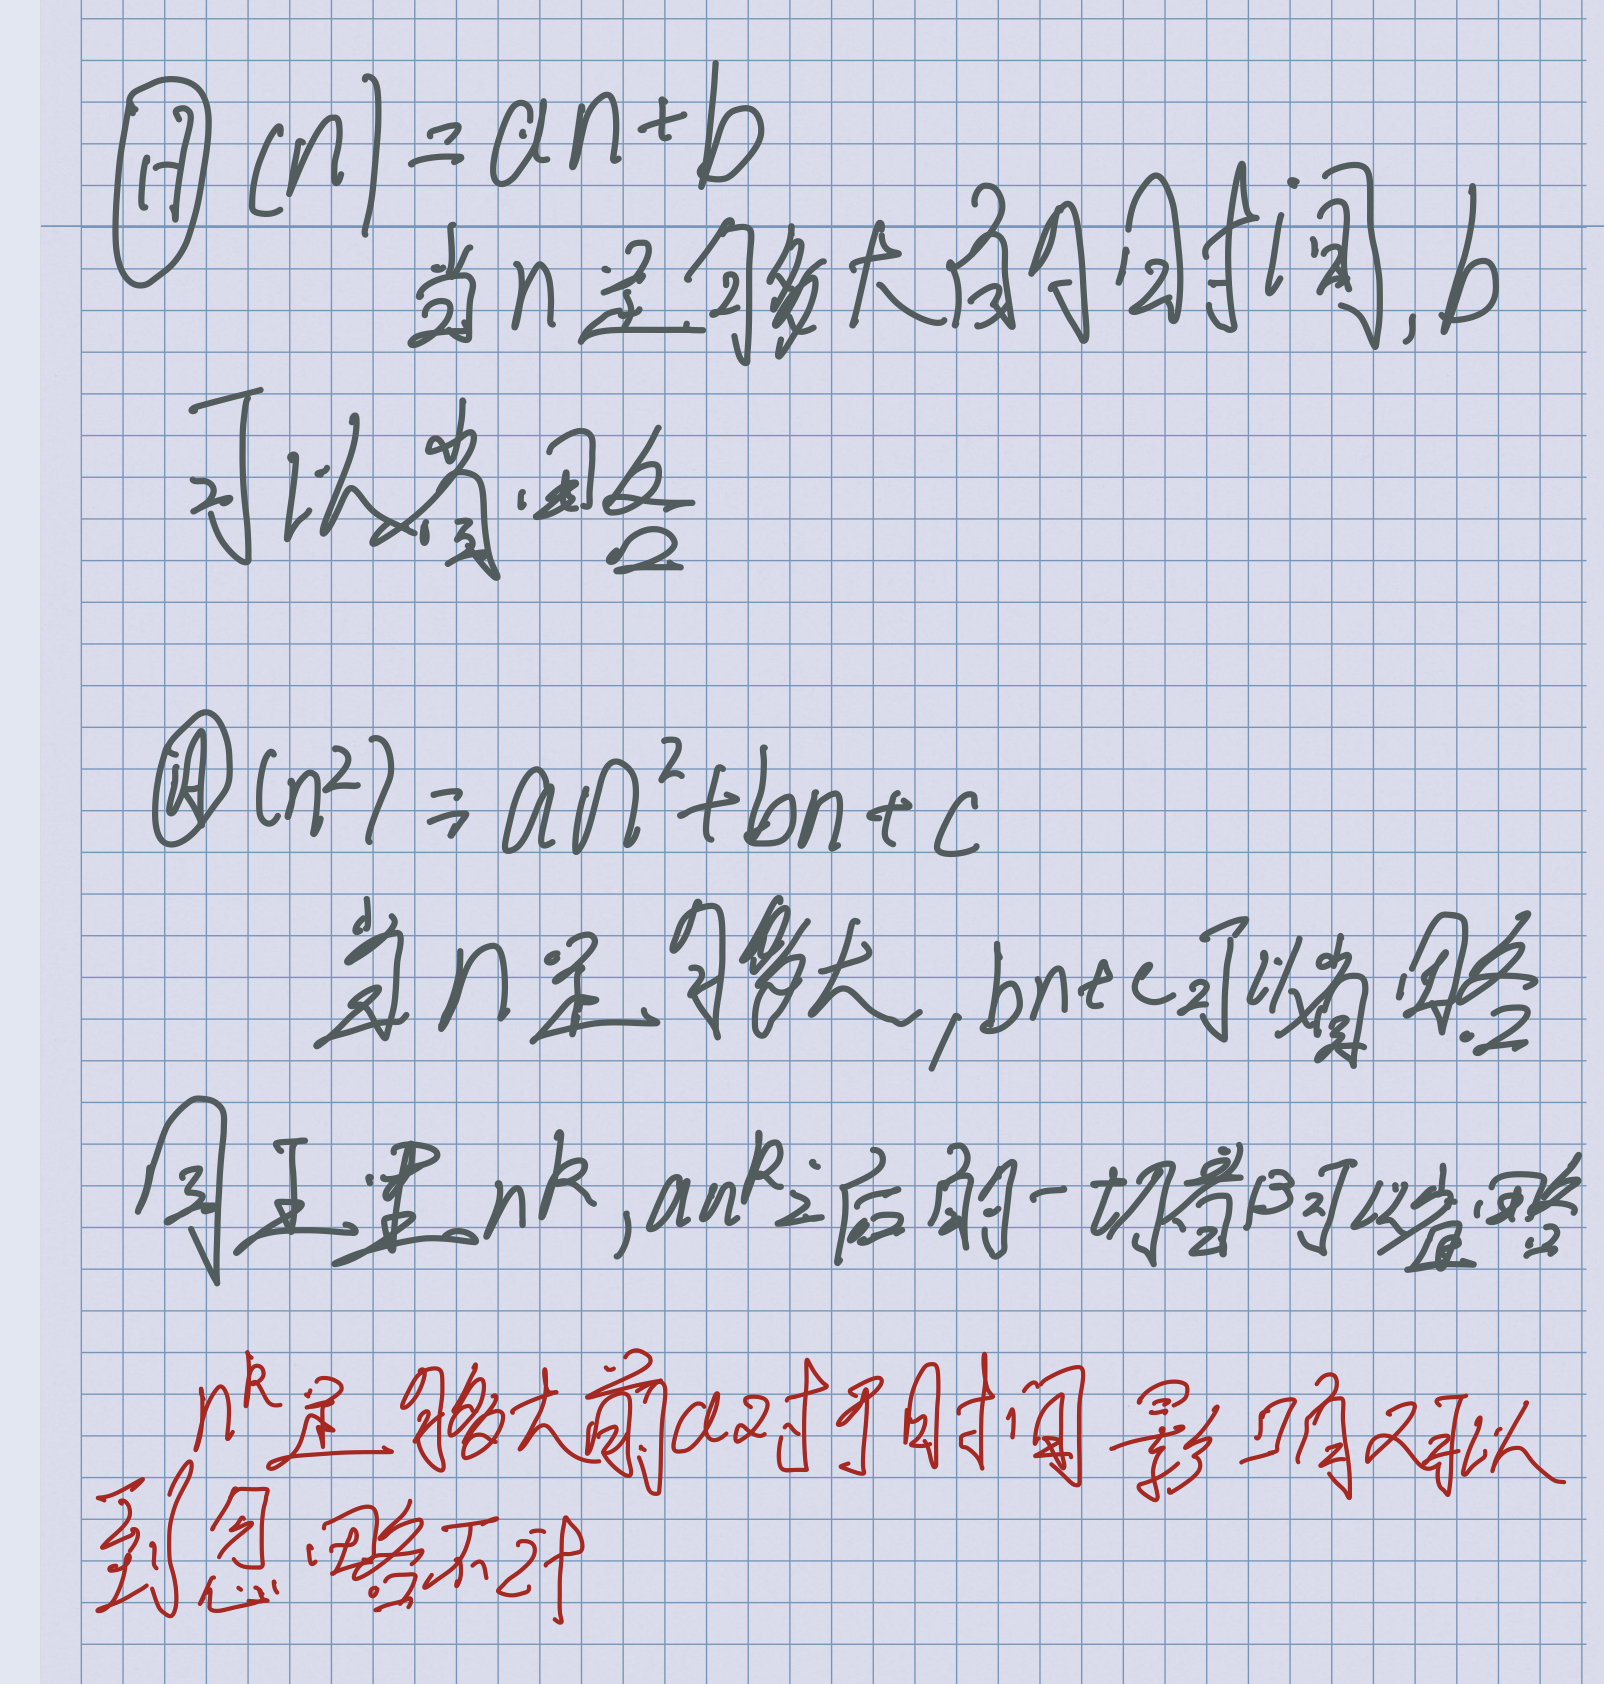 Θ(n) = an+b
当n足够大的时间,b
可以省略
Θ(n²) = an²+bn+c
当n足够大,bn+c可以省略
n^k, an^k之后的一切都可以省略
n^k足够大前a对于时间影响可以
到忽略不计